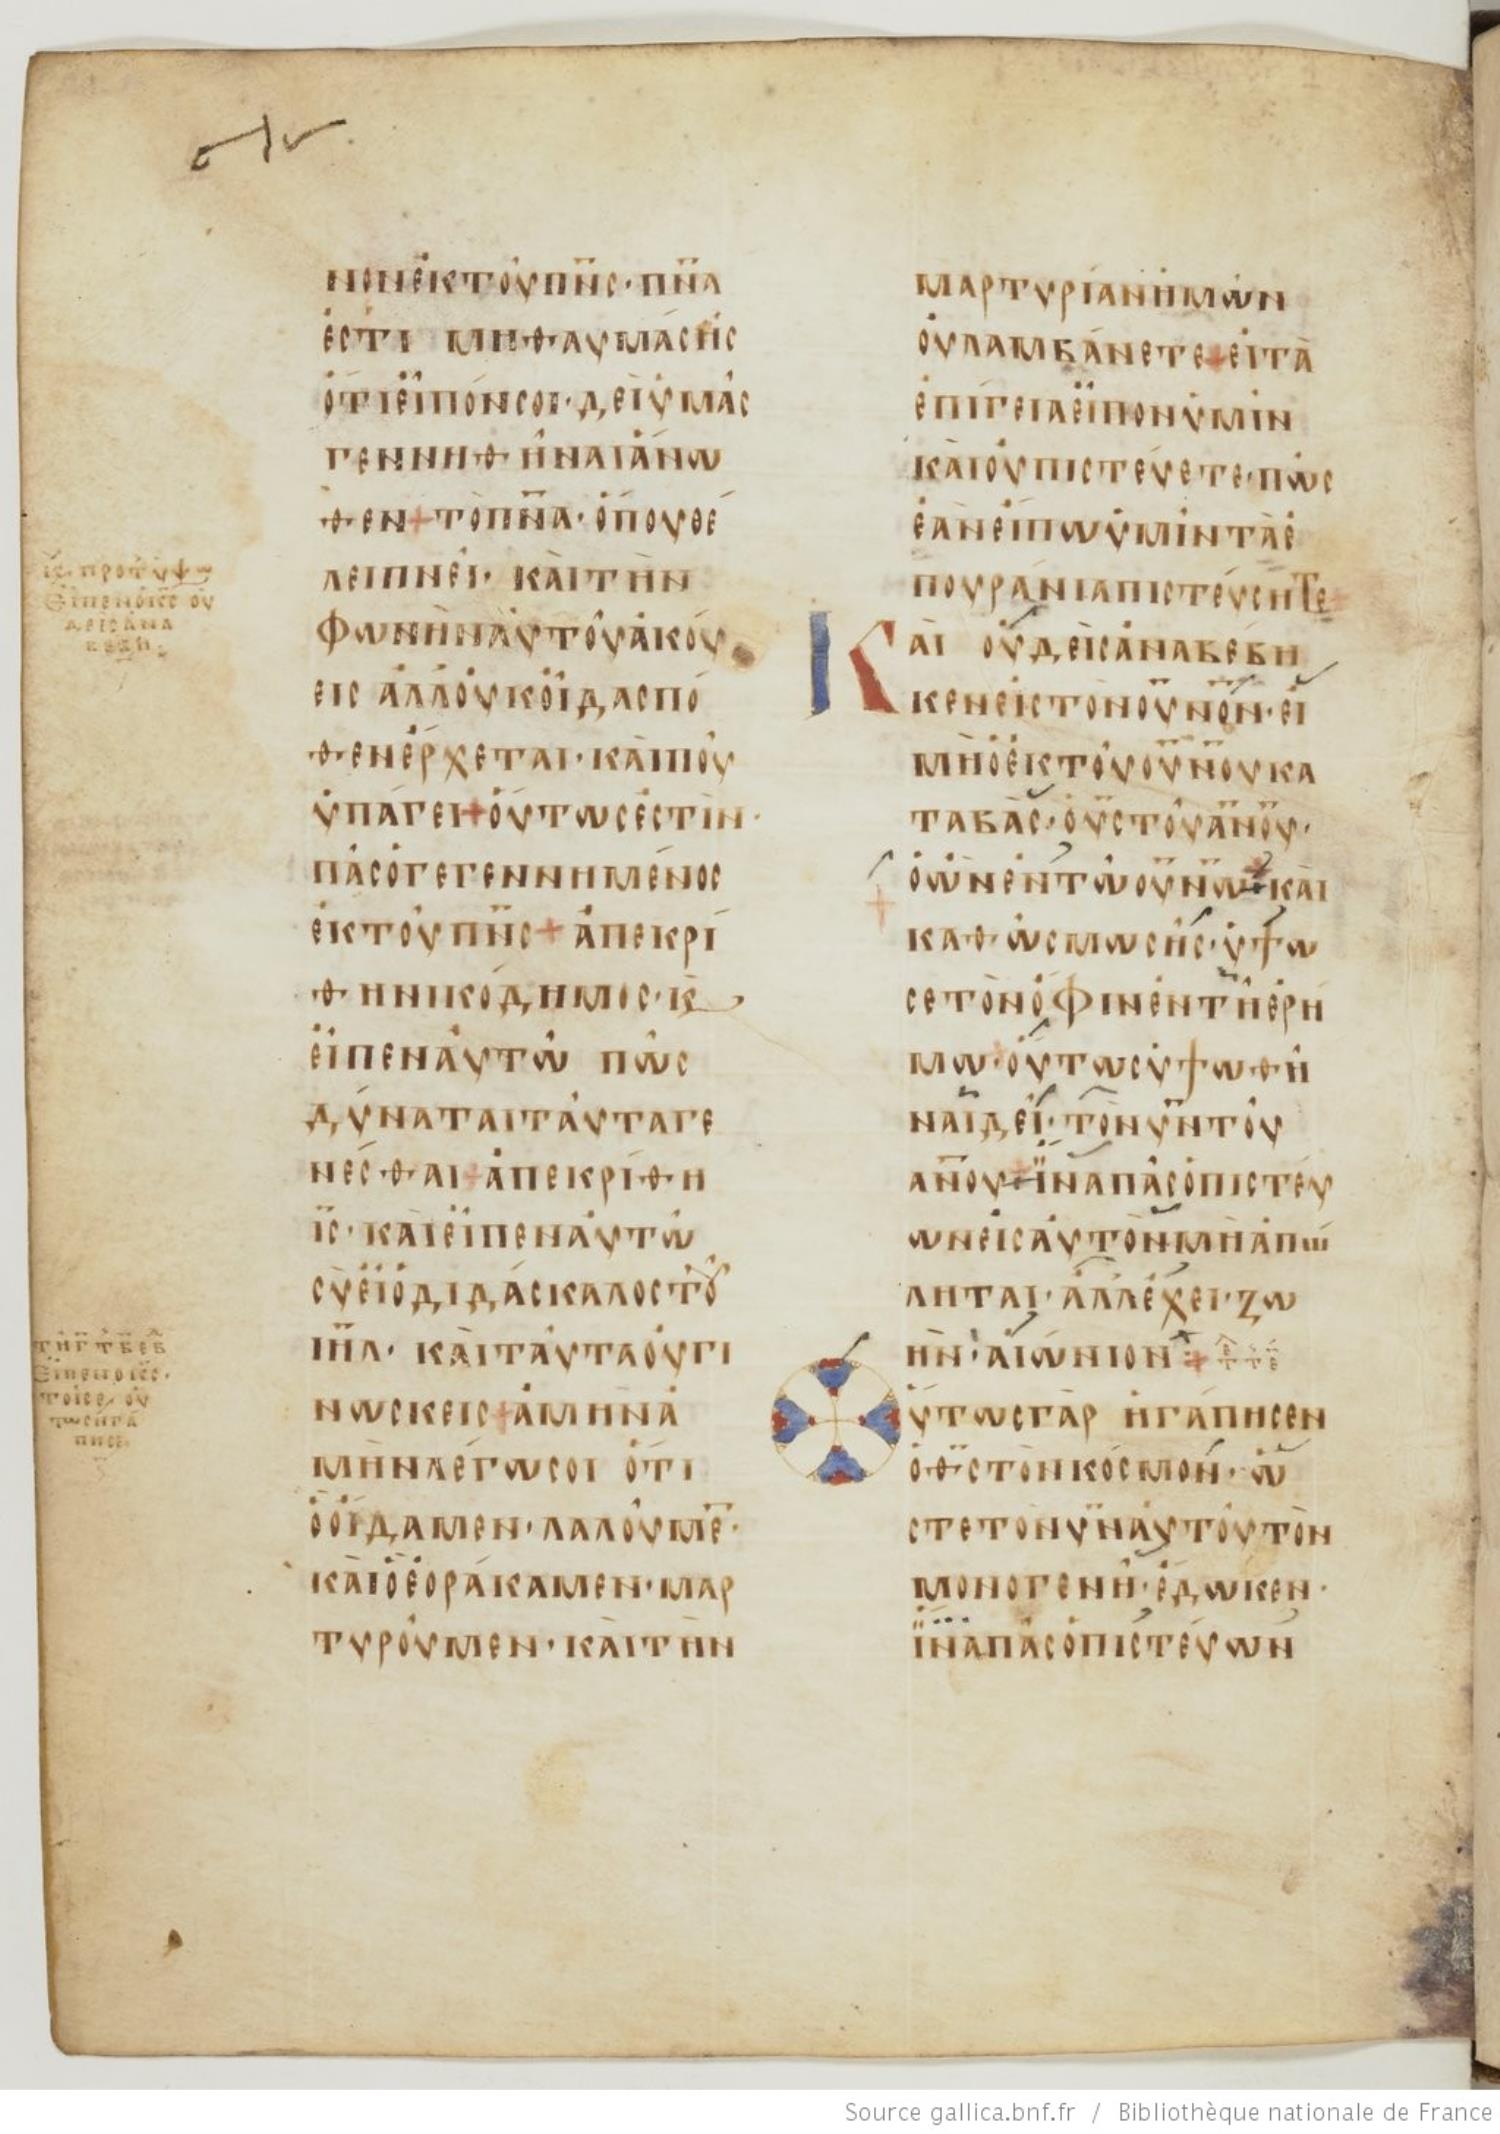 ΝΟΝ ἐΚ ΤΟΥ ΠΝ̅Σ· ΠΝ̅Α
ἐCΤΙ ΜΗ ΘΑΥΜΆCΗC
ὅΤΙ ΕἶΠΌΝ CΟΙ· ΔΕῖ ὑΜᾶC
ΓΕΝΝΗΘῆΝΑΙ ἄΝΩ
ΘΕΝ + ΤῸ ΠΝ̅Α· ὅΠΟΥ ΘΈ
ΛΕΙ ΠΝΕῖ· ΚΑῚ ΤῊΝ
ΦΩΝῊΝ ΑὐΤΟΥ͂ ἀΚΟΎ
ΕΙC ἀΛΛ ΟὐΚ ΟἶΔΑC ΠΌ
ΘΕΝ ἔΡΧΕΤΑΙ· ΚΑῚ ΠΟΥ͂
ὑΠΆΓΕΙ + ΟὕΤΩC ἐCΤῚΝ·
Πᾶ̂C ὁ ΓΕΓΕΝΝΗΜΈΝΟC
ἐΚ ΤΟΥ͂ ΠΝ̅C + ἀΠΕΚΡΊ
ΘΗ ΝΙΚΌΔΗΜΟC· Κ
ΕἶΠΕΝ ΑὐΤῶ ΠῶC
ΔΎΝΑΤΑΙ ΤΑΥ͂ΤΑ ΓΕ
ΝΈCΘΑΙ + ἀΠΕΚΡΊΘΗ
ΙC̅· ΚΑῚ ΕἶΠΕΝ ΑὐΤῶ
CῪ Εἶ ὁ ΔΙΔΆCΚΑΛΟC ΤΟΥ͂
ΙΗ̅Λ· ΚΑῚ ΤΑΥ͂ΤΑ ΟὐΓΙ
ΝΩCΚΕΙC + ἀΜῊΝ ἀ
ΜῊΝ ΛΈΓΩ CΟΙ ὅΤΙ
ὃ ΟἴΔΑΜΕΝ· ΛΑΛΟΥ͂ΜΕ̅·
ΚΑῚ ὃ ἑΟΡΆΚΑΜΕΝ· ΜΑΡ
ΤΥΡΟΥ͂ΜΕΝ· ΚΑῚ ΤῊΝ
ΜΑΡΤΥΡΊΑΝ ἡΜῶΝ
ΟὐΛΑΜΒΆΝΕΤΕ + ΕἰΤᾺ
ἐΠΊΓΕΙΑ ΕἶΠΟΝ ὑΜῖΝ
ΚΑῚ ΟὐΠΙCΤΕΎΕΤΕ· ΠῶC
ἐᾺΝ ΕἴΠΩ ὑΜῖΝ ΤᾺ ἐ
ΠΟΥΡΆΝΙΑ ΠΙCΤΕΎCΗΤΕ
ΚΑῚ ΟὐΔΕῚC ἀΝΑΒΈΒΗ
ΚΕΝ ΕἰC ΤῸΝ ΟΥ̅ΝΟ̅Ν· Εἰ
ΜῊ ὁ ἐΚ ΤΟΥ͂ ΟΥ̅ΝΟ̅Υ ΚΑ
ΤΑΒᾺC· ὁ Υ̅C ΤΟΥ͂ Α̅ΝΟ̅Υ·
ὁ ὢΝ ἐΝ Τῶ ΟΥ̅ΝΩ̅ + ΚΑῚ
ΚΑΘῺC ΜΩCῆC· ὕΨΩ
CΕ ΤῸΝ ὄΦΙΝ ἐΝ Τῆ ἐΡΉ
ΜΩ· ΟὕΤΩC ὑΨΩΘῆ
ΝΑΙ ΔΕῖ· ΤῸΝ Υ̅Ν ΤΟΥ͂
Α̅ΝΟ̅Υ + ἵΝΑ Πᾶ̂C ὁ ΠΙCΤΕΎ
ΩΝ ΕἰC ΑὐΤῸΝ ΜῊ ἀΠΌ
ΛΗΤΑΙ· ἀΛΛ ἔΧΕΙ· ΖΩ
ῊΝ· ΑἰΏΝΙΟΝ +
ΟὕΤΩC ΓᾺΡ ἠΓΆΠΗCΕΝ
ὁ Θ̅C ΤῸΝ ΚΌCΜΟΝ· ὥ
CΤΕ ΤῸΝ Υ̅Ν ΑὐΤΟΥ͂ ΤῸΝ
ΜΟΝΟΓΕΝῆ· ἔΔΩΚΕΝ·
ἵΝΑ Πᾶ̂C ὁ ΠΙCΤΕΎΩΝ
Source gallica.bnf.fr / Bibliothèque nationale de France